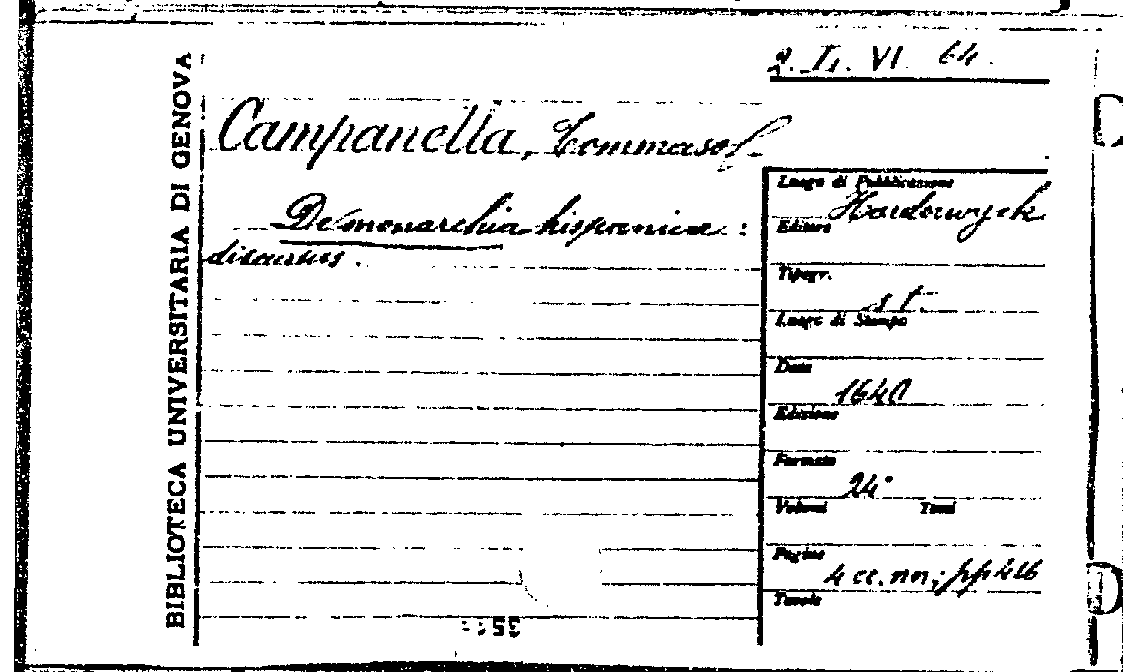 BIBLIOTECA UNIVERSITARIA DI GENOVA
2. L. VI 64.
Campanella, Tommaso
De monarchia hispanica :
discursus .
Luogo di Pubblicazione
Harderwyck
Editore
Tipogr.
s.t.
Luogo di Stampa
Data
1640
Edizione
Formato
24°
Volumi Tomi
Pagine
4 cc. nn; pp 416
Tavole